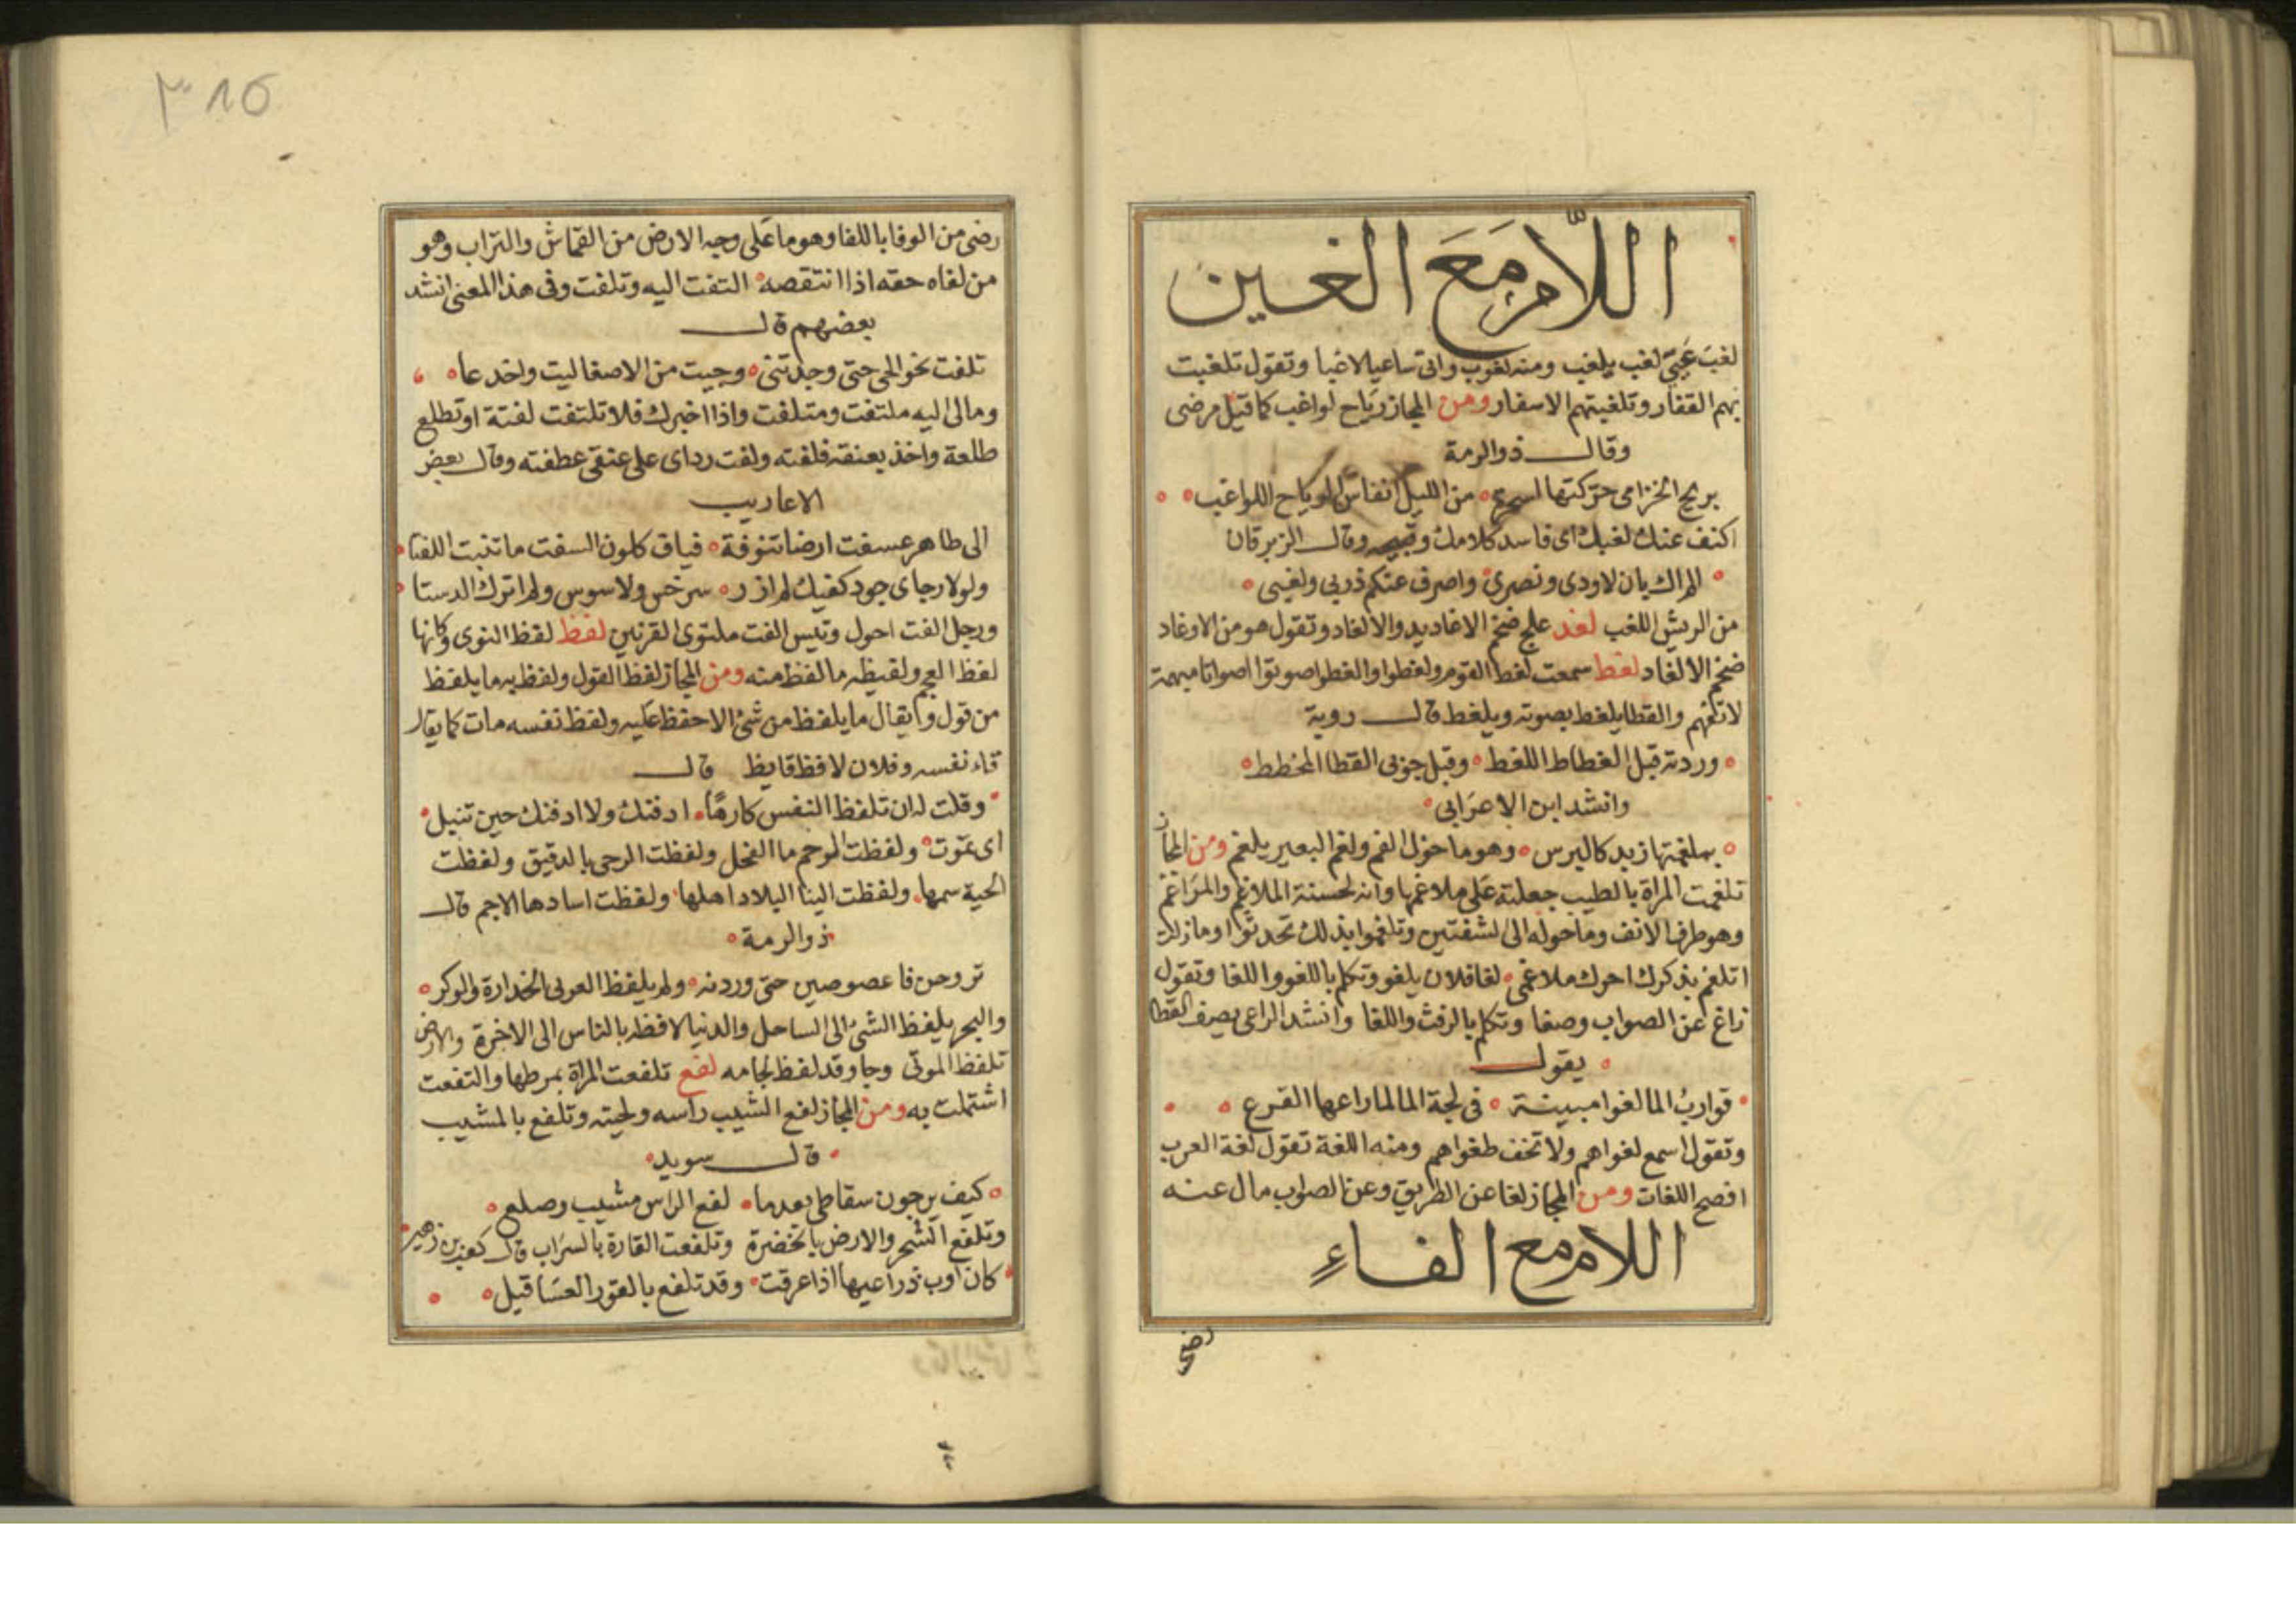 اللام مع الغين
لغب عَيِيَ لغب يلغب ومنه لغوب واتى ساعيا لاغبا وتقول تلغبت
بهم القفار وتلغبتهم الاسفار ومن المجاز رياح لواغب كما قيل مرضى
وقال ذو الرمة
بريح الخزامى حركتها من الليل انفاس الرياح اللواغب
اكفف عنك لغبك اى فاسد كلامك وقبيحه وقال الزبرقان
الم اك باذلا ودى ونصرى واصرف عنكم ذربى ولغبى
من الريش اللغب لغد علج ضخم الاغاديد والالغاد وتقول هو من الاوغاد
ضخم الالغاد لغط سمعت لغط القوم ولغطوا والغطوا صوتوا اصواتا مبهمة
لا تفهم والقطا يلغط بصوته ويلغط قال روبة
وردته قبل الغطاط اللغط وقبل جونى القطا المخطط
وانشد ابن الاعرابى
بملغمتها زبد كالبرس وهو ما حول الفم ولغم البعير يلغم ومن المجاز
تلغمت المراة بالطيب جعلته على ملاغمها وانه لحسنة الملاغم والمراغم
وهو طرف الانف وما حوله الى الشفتين وتلغموا بذلك تحدثوا وما زلت
اتلغم بذكرك احرك ملاغمى لغا فلان يلغو وتكلم باللغو واللغا وتقول
زاغ عن الصواب وصغا وتكلم بالرفث واللغا وانشد الراعى يصف القطا
يقول
قوارب الما لغواها مبينة فى لجة الما لما راعها الفزع
وتقول اسمع لغواهم ولا تخف طغواهم ومنه اللغة تقول لغة العرب
افصح اللغات ومن المجاز لغا عن الطريق وعن الصواب مال عنه
اللام مع الفاءِ
رضى
٣١٥
رضى من الوفا باللفا وهو ما على وجه الارض من القماش والتراب وهو
من لفاه حقه اذا انتقصه التفت اليه وتلفت وفى هذا المعنى انشد
بعضهم قال
تلفت نحو الحى حتى وجدتنى وجيت من الاصغا ليت واخدعا
ومالى اليه ملتفت ومتلفت واذا اخبرك فلا تلتفت لفتة او تطلع
طلعة واخذ بعنقه فلفته ولفت رداى على عنقى عطفته وقال بعض
الاعاريب
الى طاهر عسفت ارضا تنوفة فياف كلون السفت ما تنبت اللفتا
ولولا رجاى جود كفيك لم ازر سرخس ولا سوس ولم اترك الدستا
ورجل الفت احول وتيس الفت ملتوى القرنين لفظ لفظ النوى وكانها
لفظ العجم ولفيظه ما لفظ منه ومن المجاز لفظ القول ولفظ به ما يلفظ
من قول ويقال ما يلفظ من شئ الا حفظ عليه ولفظ نفسه مات كما يقال
قاء نفسه وفلان لافظ فايظ قال
وقلت له ان تلفظ النفس كارها ادفنك ولا ادفنك حين تنبل
اى تموت ولفظت الرحم ما الفحل ولفظت الرحى بالدقيق ولفظت
الحية سمها ولفظت الينا البلاد اهلها ولفظت اسادها الاجم قال
ذو الرمة
تروحن فاعصوصبن حتى وردنه ولم يلفظ الغرثى الخدارية الوكر
والبحر يلفظ الشئ الى الساحل والدنيا لافظه بالناس الى الاخرة والارض
تلفظ الموتى وجا وقد لفظ لجامه لفع تلفعت المراة بمرطها والتفعت
اشتملت به ومن المجاز لفع الشيب راسه ولحيته وتلفع بالمشيب
قال سويد
كيف يرجون سقاطى بعدما لفع الراس مشيب وصلع
وتلفع الشجر والارض بالخضرة وتلفعت القارة بالسراب قال كعب بن زهير
كان اوب ذراعيها اذا عرقت وقد تلفع بالقور العسا قيل